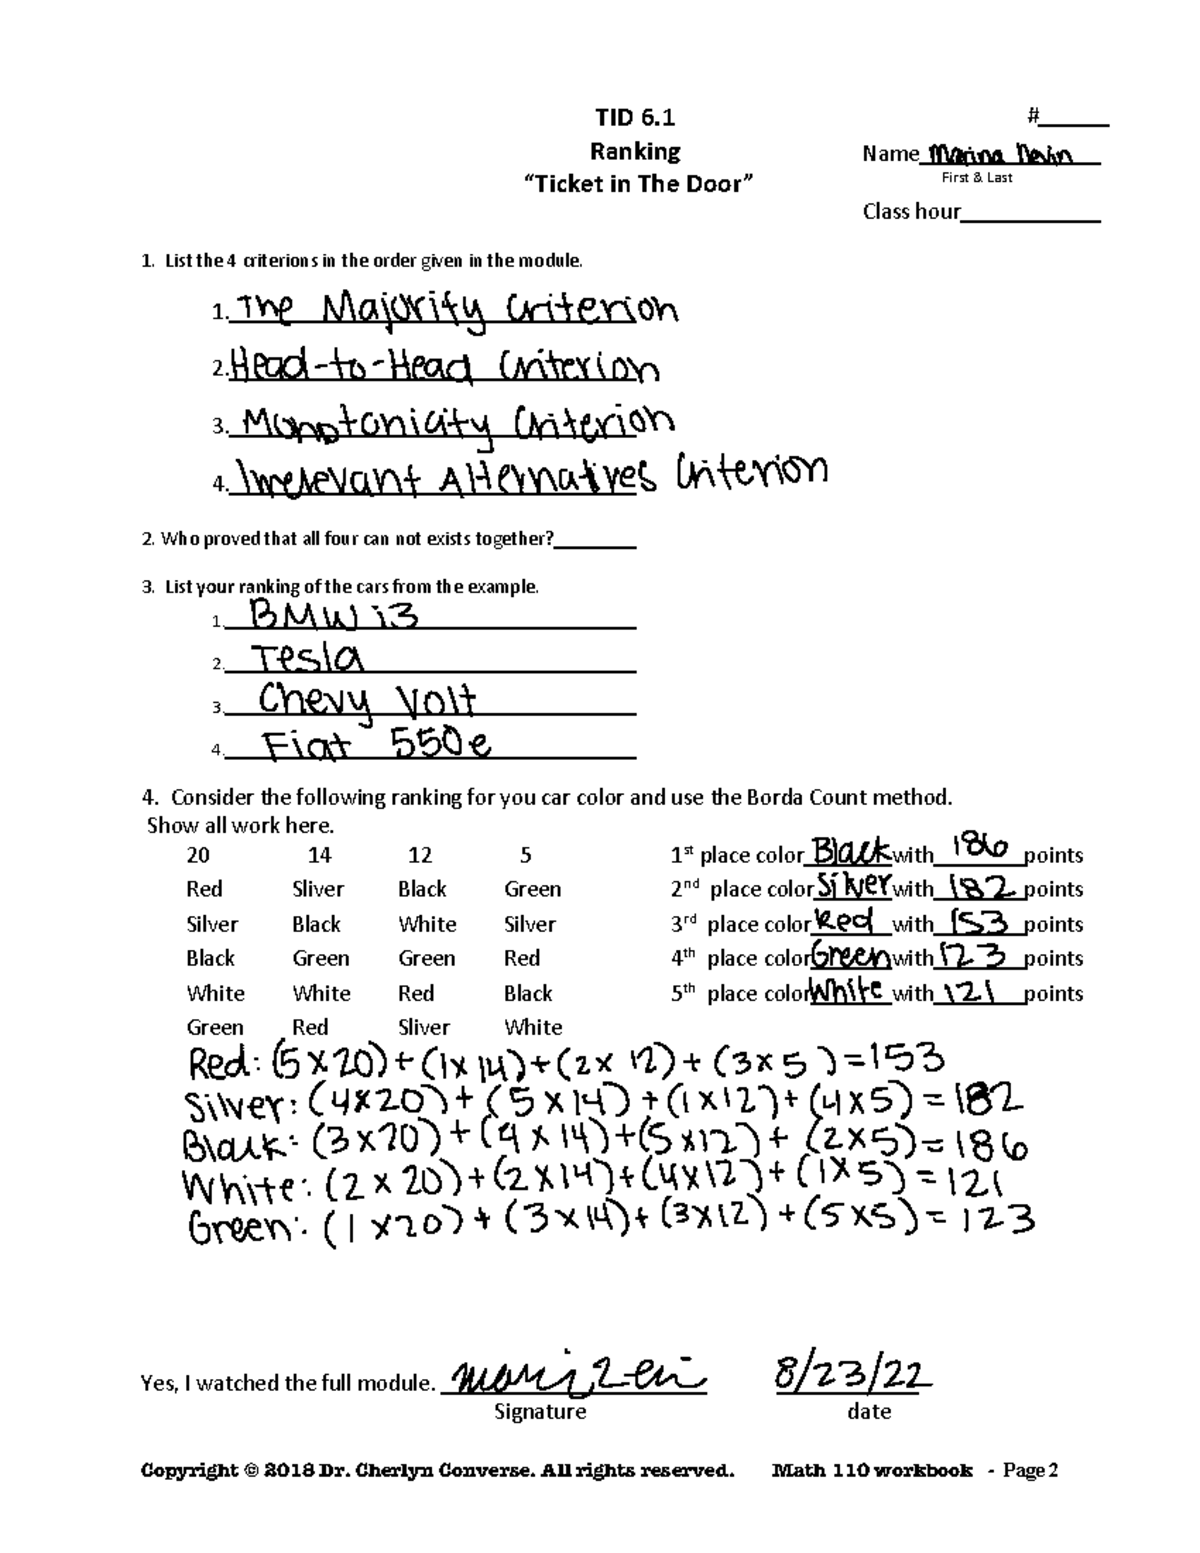 TID 6.1 #______
Ranking
Name Marina Devin
"Ticket in The Door"
First & Last
Class hour____________
1. List the 4 criterions in the order given in the module.
1. The Majority Criterion
2. Head-to-Head Criterion
3. Monotonicity Criterion
4. Irrelevant Alternatives Criterion
2. Who proved that all four can not exists together?________
3. List your ranking of the cars from the example.
1. BMW i3
2. Tesla
3. Chevy Volt
4. Fiat 550e
4. Consider the following ranking for you car color and use the Borda Count method.
Show all work here.
20 14 12 5 1st place color Black with 186 points
Red Sliver Black Green 2nd place color Silver with 182 points
Silver Black White Silver 3rd place color Red with 153 points
Black Green Green Red 4th place color Green with 123 points
White White Red Black 5th place color White with 121 points
Green Red Sliver White
Red: (5 x 20) + (1 x 14) + (2 x 12) + (3 x 5) = 153
Silver: (4 x 20) + (5 x 14) + (1 x 12) + (4 x 5) = 182
Black: (3 x 20) + (4 x 14) + (5 x 12) + (2 x 5) = 186
White: (2 x 20) + (2 x 14) + (4 x 12) + (1 x 5) = 121
Green: (1 x 20) + (3 x 14) + (3 x 12) + (5 x 5) = 123
Yes, I watched the full module. 8/23/22
Signature date
Copyright © 2018 Dr. Cherlyn Converse. All rights reserved. Math 110 workbook - Page 2